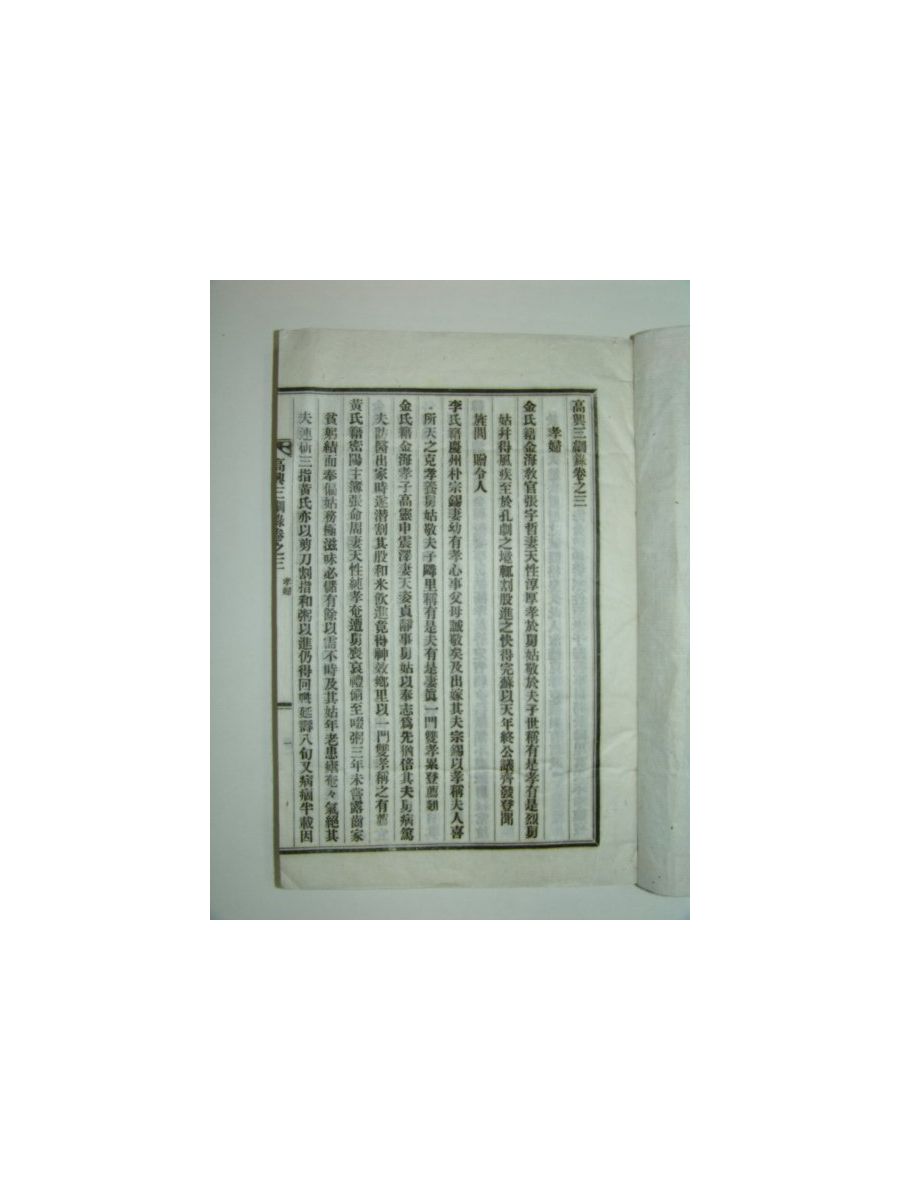 高興三綱錄卷之三
孝婦
金氏籍金海敎官張字哲妻天性淳厚孝於舅姑敬於夫子世稱有是孝有是烈舅
姑幷得風疾至於孔劇之境輒割股進之快得完蘇以天年終公議齊發登聞
旌閭 贈令人
李氏籍慶州朴宗錫妻幼有孝心事父母誠敬矣及出嫁其夫宗錫以孝稱夫人喜
所天之克孝養舅姑敬夫子隣里稱有是夫有是妻眞一門雙孝累登薦剡
金氏籍金海孝子高靈申震澤妻天姿貞靜事舅姑以奉志爲先猶倍其夫舅病篤
夫訪醫出家時遂潛割其股和米飮進竟得神效鄕里以一門雙孝稱之有薦
黃氏籍密陽主簿張命周妻天性純孝奄遭舅喪哀禮備至啜粥三年未嘗露齒家
貧躬績而奉偏姑務極滋味必儲有餘以需不時及其姑年老患癘奄々氣絕其
夫連斫三指黃氏亦以剪刀割指和粥以進仍得回甦延壽八旬又病痼半載因
高興三綱錄卷之三 孝婦 一